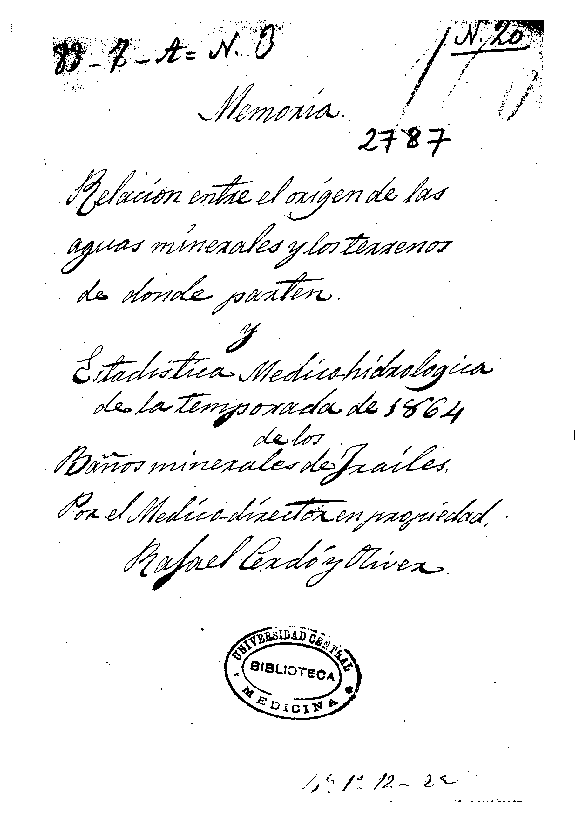 83-7-A=N.3
N.20
Memoria.
2787
Relacion entre el origen de las
aguas minerales y los terrenos
de donde parten.
y
Estadistica Medico-hidrologica
de la temporada de 1864
de los
Baños minerales de Frailes.
Por el Medico-director en propiedad,
Rafael Cerdó y Oliver
UNIVERSIDAD CENTRAL
BIBLIOTECA
MEDICINA